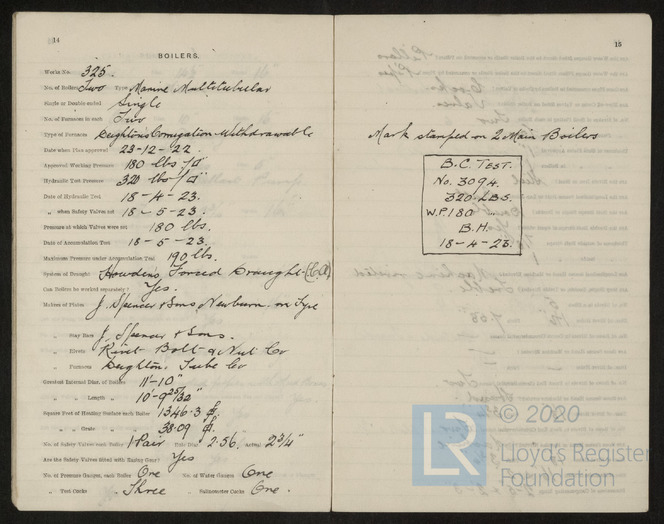 14
BOILERS.
Works No. 325.
No. of Boilers Two Type Marine Multitubular
Single or Double ended Single
No. of Furnaces in each Two
Type of Furnaces Deighton's Corrugation Withdrawable
Date when Plan approved 23-12-22.
Approved Working Pressure 180 lbs/□"
Hydraulic Test Pressure 320 lbs/□"
Date of Hydraulic Test 18-4-23.
„ when Safety Valves set 18-5-23.
Pressure at which Valves were set 180 lbs.
Date of Accumulation Test 18-5-23.
Maximum Pressure under Accumulation Test 190 lbs.
System of Draught Howdens Forced Draught
Can Boilers be worked separately? Yes.
Makers of Plates J. Spencer & Sons, Newburn on Tyne
„ Stay Bars J. Spencer & Sons.
„ Rivets Rivet Bolt & Nut Co
„ Furnaces Deighton. Tube Co
Greatest Internal Diam. of Boilers 11'-10"
„ „ Length „ 10'-9 25/32"
Square Feet of Heating Surface each Boiler 1346.3
„ „ Grate „ „ 38.09
No. of Safety Valves each Boiler 1 Pair Rule Diam. 2.56. Actual 2 3/4"
Are the Safety Valves fitted with Easing Gear? Yes
No. of Pressure Gauges, each Boiler One No. of Water Gauges One
„ Test Cocks „ Three „ Salinometer Cocks One.
15
Mark stamped on 2 Main Boilers
B.C. TEST.
No. 3094.
320 LBS.
W.P. 180 "
B.H.
18-4-23.
LR
© 2020
Lloyd's Register
Foundation